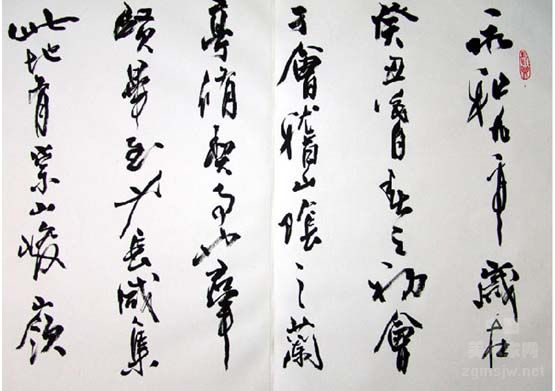 永和九年歲在
癸丑暮春之初會
于會稽山陰之蘭
亭脩禊事也羣
賢畢至少長咸集
此地有崇山峻嶺
美术家网
zgmsjw.net